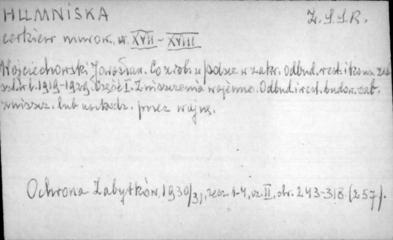 HUMNISKA
Z.S.S.R.
cerkiew murow. w. XVII – XVIII
Wojciechowski Jarosław. Co zrob. w Polsce w zakr. Odbud. rest. i kons. zab.
w l. 1919-1929. Część I. Zniszczenia wojenne. Odbud. i rest. budow. zab.
zniszcz. lub uszkodz. przez wojnę.
Ochrona Zabytków, 1930/31, zesz. 1-4, cz. II, str. 243-318 (257).